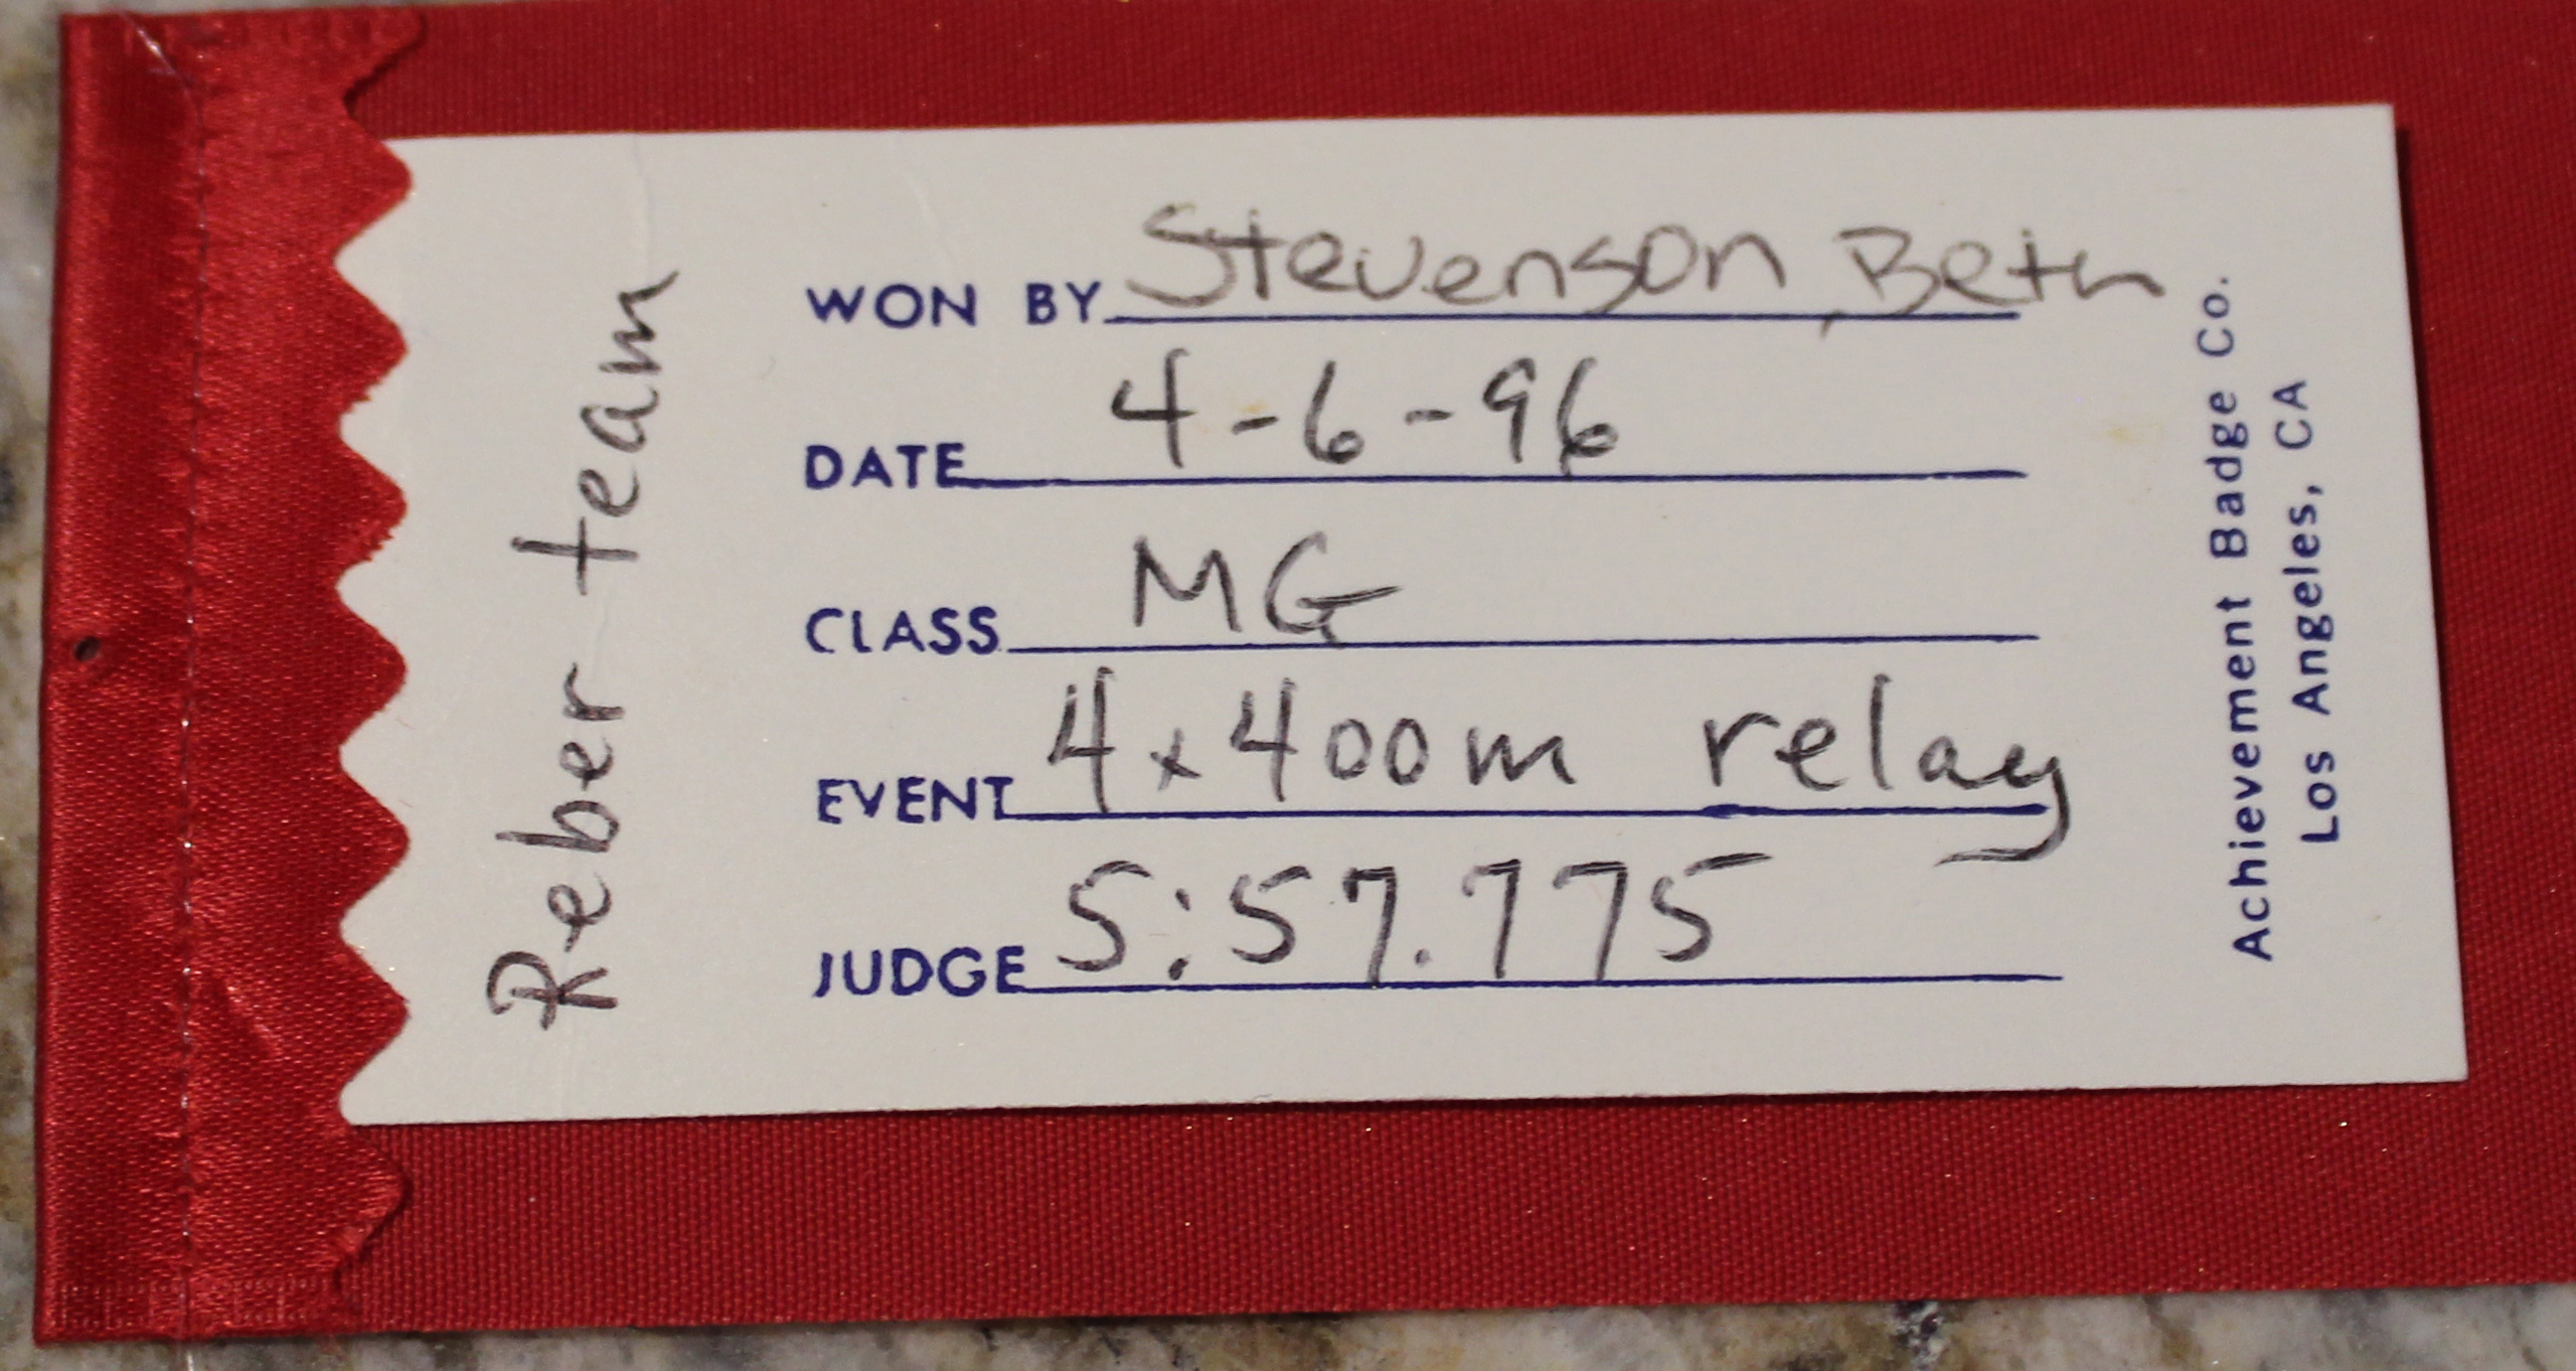 Reber team
WON BY Stevenson, Beth
DATE 4-6-96
CLASS MG
EVENT 4x400m relay
JUDGE 5:57.775
Achievement Badge Co.
Los Angeles, CA